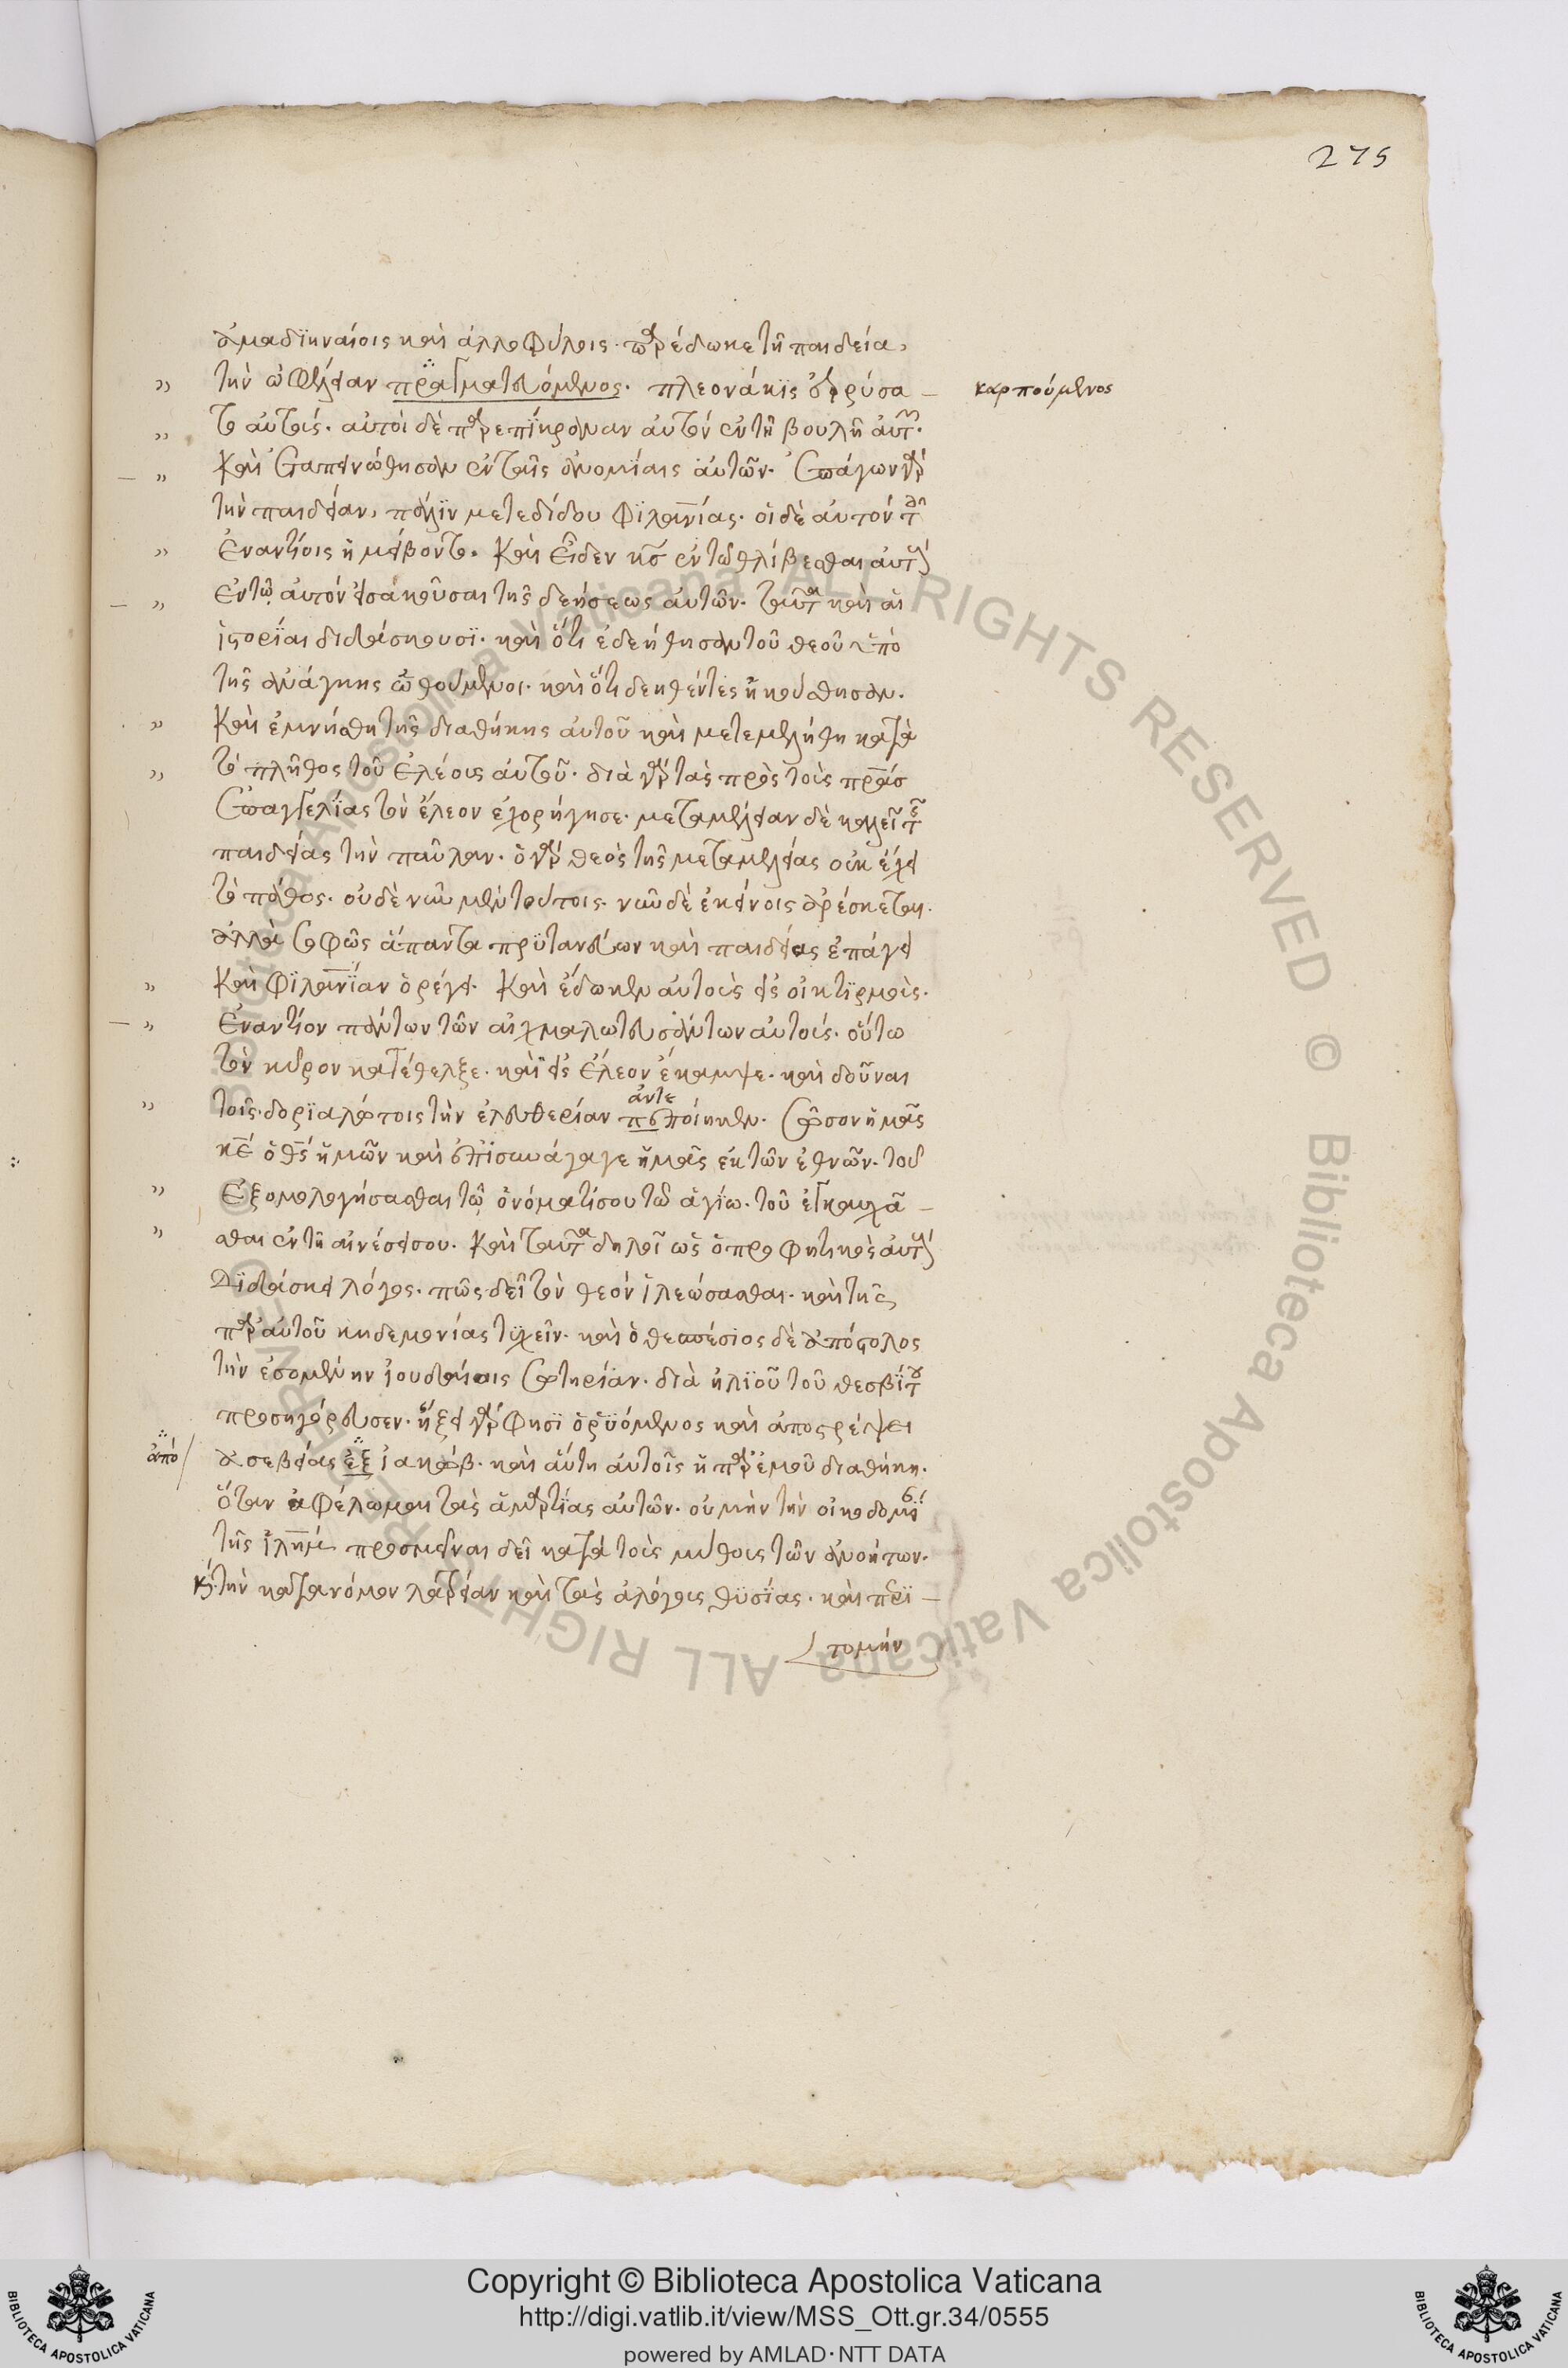 275
μαδιηναίοις καὶ ἀλλοφύλοις· παρέδωκε τῇ παιδεία,
τὴν ὠφέλειαν πραγματευόμενος· πλεονάκις ἐρρύσα –
καρπούμενος
το αὐτούς· αὐτοὶ δὲ παρεπίκραναν αὐτὸν ἐν τῇ βουλῇ αὐτῶν·
Καὶ ἐταπεινώθησαν ἐν ταῖς ἀνομίαις αὐτῶν· ἐπάγων γὰρ
τὴν παιδείαν, πάλιν μετεδίδου φιλανίας· οἱ δὲ αὐτὸν τοῖς
Ἐναντίοις ἠμείβοντο· Καὶ εἶδεν κς ἐν τῷ θλίβεσθαι αὐτοὺς
ἐν τῷ αὐτὸν εἰσακοῦσαι τῆς δεήσεως αὐτῶν· ταῦτα καὶ αἱ
ἱστορίαι διδάσκουσι· καὶ ὅτι ἐδεήθησαν τοῦ θεοῦ ὑπὸ
τῆς ἀνάγκης ὠθούμενοι· καὶ ὅτι δεηθέντες ἠκούσθησαν·
Καὶ ἐμνήσθη τῆς διαθήκης αὐτοῦ καὶ μετεμελήθη κατὰ
τὸ πλῆθος τοῦ ἐλέους αὐτοῦ· διὰ γὰρ τὰς πρὸς τοὺς πρας
ἐπαγγελίας τὸν ἔλεον ἐχορήγησε· μεταμέλειαν δὲ καλεῖ τῆς
παιδείας τὴν παῦλαν· ὁ γὰρ θεὸς τῆς μεταμελείας οὐκ ἔχει
τὸ πάθος· οὐδὲ νῦν μὲν τούτοις· νῦν δὲ ἐκείνοις ἀρέσκεται·
ἀλλὰ σοφῶς ἅπαντα πρυτανεύων καὶ παιδείας ἐπάγει
Καὶ φιλανίαν ὀρέγει· Καὶ ἔδωκεν αὐτοὺς εἰς οἰκτιρμούς·
Ἐναντίον πάντων τῶν αἰχμαλωτευσάντων αὐτούς· οὕτω
τὸν κύρον κατέθελξε· καὶ εἰς ἔλεον ἔκαμψε· καὶ δοῦναι
τοῖς δοριαλώτοις τὴν ἐλευθερίαν πεποίηκεν· Σῶσον ἡμᾶς
ἀντε
κε ὁ θς ἡμῶν καὶ ἐπισυνάγαγε ἡμᾶς ἐκ τῶν ἐθνῶν· τοῦ
Ἐξομολογήσασθαι τῷ ὀνόματί σου τῷ ἁγίω· τοῦ ἐγκαυχᾶ –
σθαι ἐν τῇ αἰνέσει σου· Καὶ ταῦτα δηλοῖ ὡς ὁ προφητικὸς αὐτοὺς
Διδάσκει λόγος· πῶς δεῖ τὸν θεὸν ἱλεώσασθαι· καὶ τῆς
παρ' αὐτοῦ κηδεμονίας τυχεῖν· καὶ ὁ θεσπέσιος δὲ ἀπόστολος
τὴν ἐσομένην ἰουδαίοις σωτηρίαν· διὰ ἡλιοῦ τοῦ θεσβίτου
προσηγόρευσεν· ἥξει γὰρ φησὶ ὁ ῥυόμενος καὶ ἀποστρέψει
ἀπό
ἀσεβείας ἐξ ἰακώβ· καὶ αὕτη αὐτοῖς ἡ παρ' ἐμοῦ διαθήκη·
ὅταν ἀφέλωμαι τὰς ἁμαρτίας αὐτῶν· οὐ μὴν τὴν οἰκοδομὴν
τῆς ἰλημ προσμεῖναι δεῖ κατὰ τοὺς μύθους τῶν ἀνοήτων·
κ τὴν κατὰ νόμον λατρείαν καὶ τὰς ἀλόγους θυσίας· καὶ περι –
τομὴν
Copyright © Biblioteca Apostolica Vaticana
http://digi.vatlib.it/view/MSS_Ott.gr.34/0555
powered by AMLAD·NTT DATA